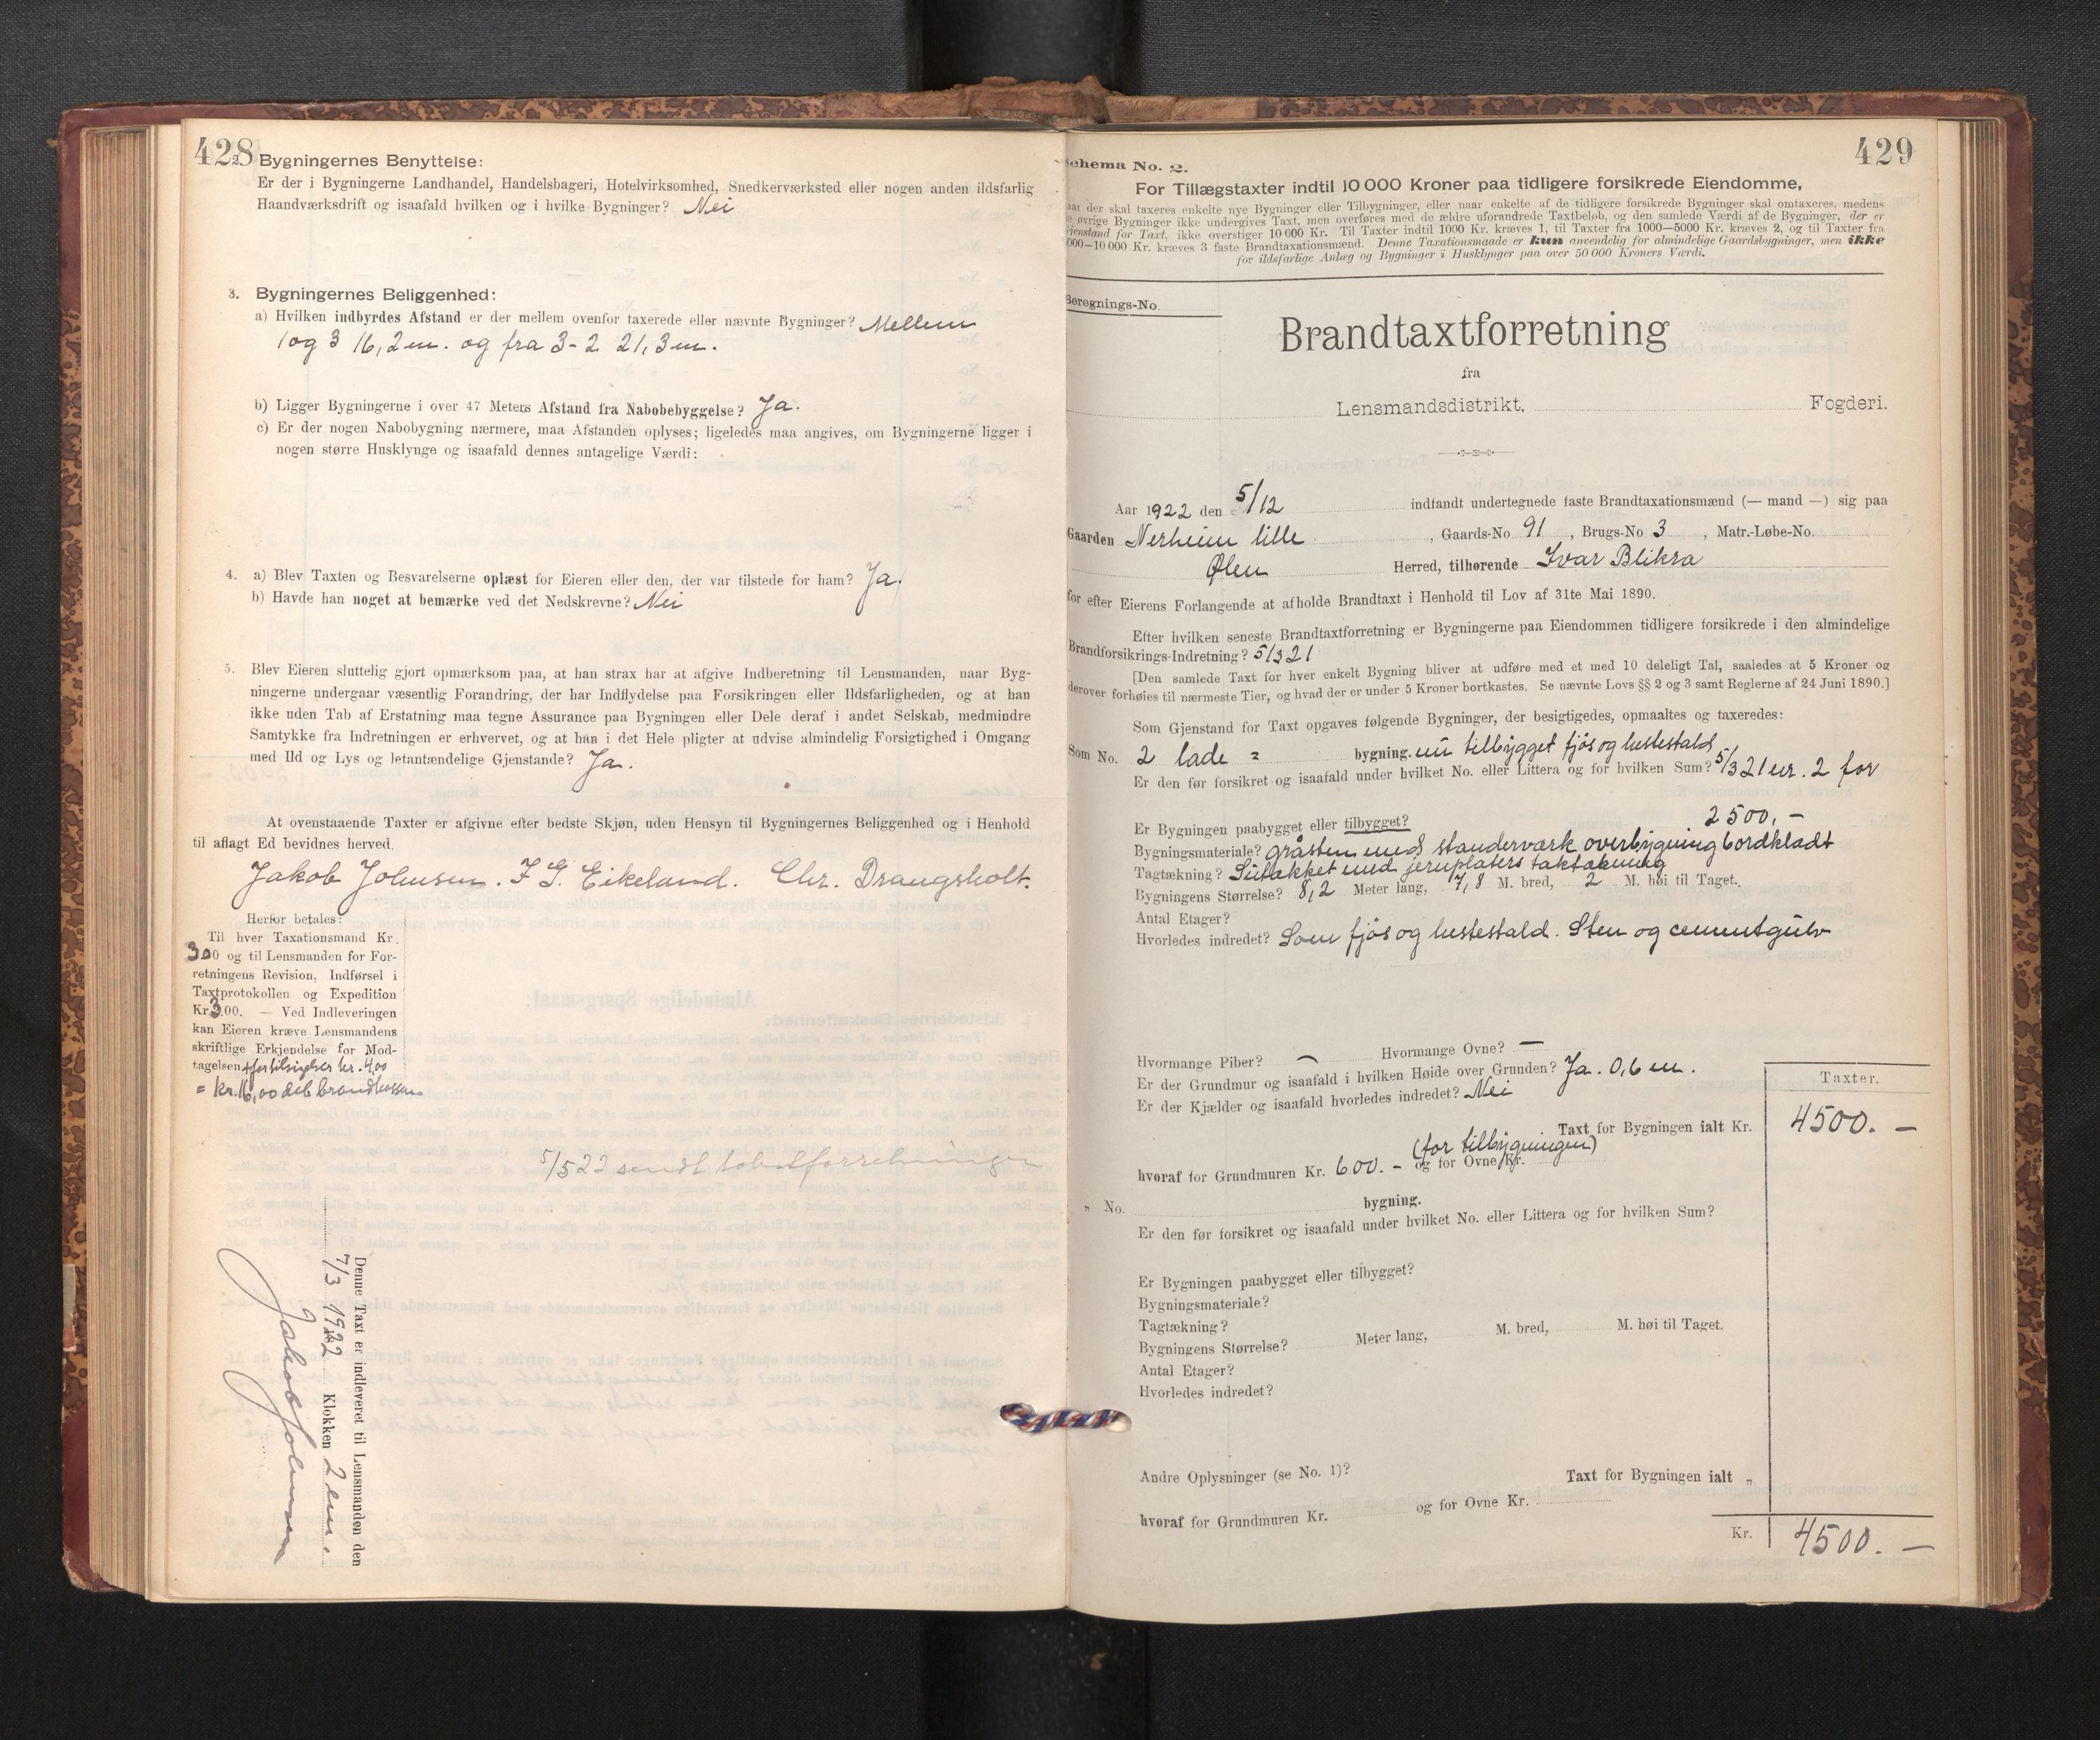 428
2. Bygningernes Benyttelse:
Er der i Bygningerne Landhandel, Handelsbageri, Hotelvirksomhed, Snedkerværksted eller nogen anden ildsfarlig
Haandværksdrift og isaafald hvilken og i hvilke Bygninger? Nei
3. Bygningernes Beliggenhed:
a) Hvilken indbyrdes Afstand er der mellem ovenfor taxerede eller nævnte Bygninger? Mellem
1 og 3 16,2 m. og fra 3-2 21,3 m.
b) Ligger Bygningerne i over 47 Meters Afstand fra Nabobebyggelse? Ja.
c) Er der nogen Nabobygning nærmere, maa Afstanden oplyses; ligeledes maa angives, om Bygningerne ligger i
nogen større Husklynge og isaafald dennes antagelige Værdi:
4. a) Blev Taxten og Besvarelserne oplæst for Eieren eller den, der var tilstede for ham? Ja.
b) Havde han noget at bemærke ved det Nedskrevne? Nei
5. Blev Eieren sluttelig gjort opmærksom paa, at han strax har at afgive Indberetning til Lensmanden, naar Byg-
ningerne undergaar væsentlig Forandring, der har Indflydelse paa Forsikringen eller Ildsfarligheden, og at han
ikke uden Tab af Erstatning maa tegne Assurance paa Bygningen eller Dele deraf i andet Selskab, medmindre
Samtykke fra Indretningen er erhvervet, og at han i det Hele pligter at udvise almindelig Forsigtighed i Omgang
med Ild og Lys og letantændelige Gjenstande? Ja.
At ovenstaaende Taxter er afgivne efter bedste Skjøn, uden Hensyn til Bygningernes Beliggenhed og i Henhold
til aflagt Ed bevidnes herved.
Jakob Johnsen. F G. Eikeland. Chr. Draugsholt.
Herfor betales:
Til hver Taxationsmand Kr.
3,00 og til Lensmanden for For-
retningens Revision, Indførsel i
Taxtprotokollen og Expedition
Kr. 3.00. — Ved Indleveringen
kan Eieren kræve Lensmandens
skriftlige Erkjendelse for Mod-
tagelsen + for tilsigelser kr. 4,00
= kr. 16,00 deb. brandkassen
5/5 22 sendt forretningen
Denne Taxt er indleveret til Lensmanden den
7/3 1922 Klokken 2 em.
Jakob Johnsen
429
Schema No. 2.
For Tillægstaxter indtil 10 000 Kroner paa tidligere forsikrede Eiendomme,
naar der skal taxeres enkelte nye Bygninger eller Tilbygninger, eller naar enkelte af de tidligere forsikrede Bygninger skal omtaxeres, medens
de øvrige Bygninger ikke undergives Taxt, men overføres med de ældre uforandrede Taxtbeløb, og den samlede Værdi af de Bygninger, der er
Gjenstand for Taxt, ikke overstiger 10 000 Kr. Til Taxter indtil 1000 Kr. kræves 1, til Taxter fra 1000—5000 Kr. kræves 2, og til Taxter fra
5000—10 000 Kr. kræves 3 faste Brandtaxationsmænd. Denne Taxationsmaade er kun anvendelig for almindelige Gaardsbygninger, men ikke
for ildsfarlige Anlæg og Bygninger i Husklynger paa over 50 000 Kroners Værdi.
Beregnings-No.
Brandtaxtforretning
fra
Lensmandsdistrikt, Fogderi.
Aar 1922 den 5/12 indfandt undertegnede faste Brandtaxationsmænd (— mand —) sig paa
Gaarden Nerheim lille, Gaards-No 91, Brugs-No 3, Matr.-Løbe-No.
Ølen Herred, tilhørende Ivar Blikra
for efter Eierens Forlangende at afholde Brandtaxt i Henhold til Lov af 31te Mai 1890.
Efter hvilken seneste Brandtaxtforretning er Bygningerne paa Eiendommen tidligere forsikrede i den almindelige
Brandforsikrings-Indretning? 5/3 21
[Den samlede Taxt for hver enkelt Bygning bliver at udføre med et med 10 deleligt Tal, saaledes at 5 Kroner og
derover forhøies til nærmeste Tier, og hvad der er under 5 Kroner bortkastes. Se nævnte Lovs §§ 2 og 3 samt Reglerne af 24 Juni 1890.]
Som Gjenstand for Taxt opgaves følgende Bygninger, der besigtigedes, opmaaltes og taxeredes:
Som No. 2 lade = bygning. nu tilbygget fjøs og hestestald
Er den før forsikret og isaafald under hvilket No. eller Littera og for hvilken Sum? 5/3 21 nr. 2 for
2500,-
Er Bygningen paabygget eller tilbygget?
Bygningsmateriale? gråsten med standerværk overbygning bordklædt
Tagtækning? med jernplaters taktækning
Bygningens Størrelse? 8,2 Meter lang, 7,8 M. bred, 2 M. høi til Taget.
Antal Etager?
Hvorledes indredet? Som fjøs og hestestald. Sten og cementgulv
Hvormange Piber? — Hvormange Ovne? —
Er der Grundmur og isaafald i hvilken Høide over Grunden? Ja. 0,6 m.
Er der Kjælder og isaafald hvorledes indredet? Nei
Taxter.
Taxt for Bygningen ialt Kr. 4500. —
(for tilbygningen)
hvoraf for Grundmuren Kr. 600. - og for Ovne Kr.
„ No. bygning.
Er den før forsikret og isaafald under hvilket No. eller Littera og for hvilken Sum?
Er Bygningen paabygget eller tilbygget?
Bygningsmateriale?
Tagtækning?
Bygningens Størrelse? Meter lang, M. bred, M. høi til Taget.
Antal Etager?
Hvorledes indredet?
Andre Oplysninger (se No. 1)? Taxt for Bygningen ialt „
hvoraf for Grundmuren Kr. og for Ovne Kr.
Kr. 4500. —